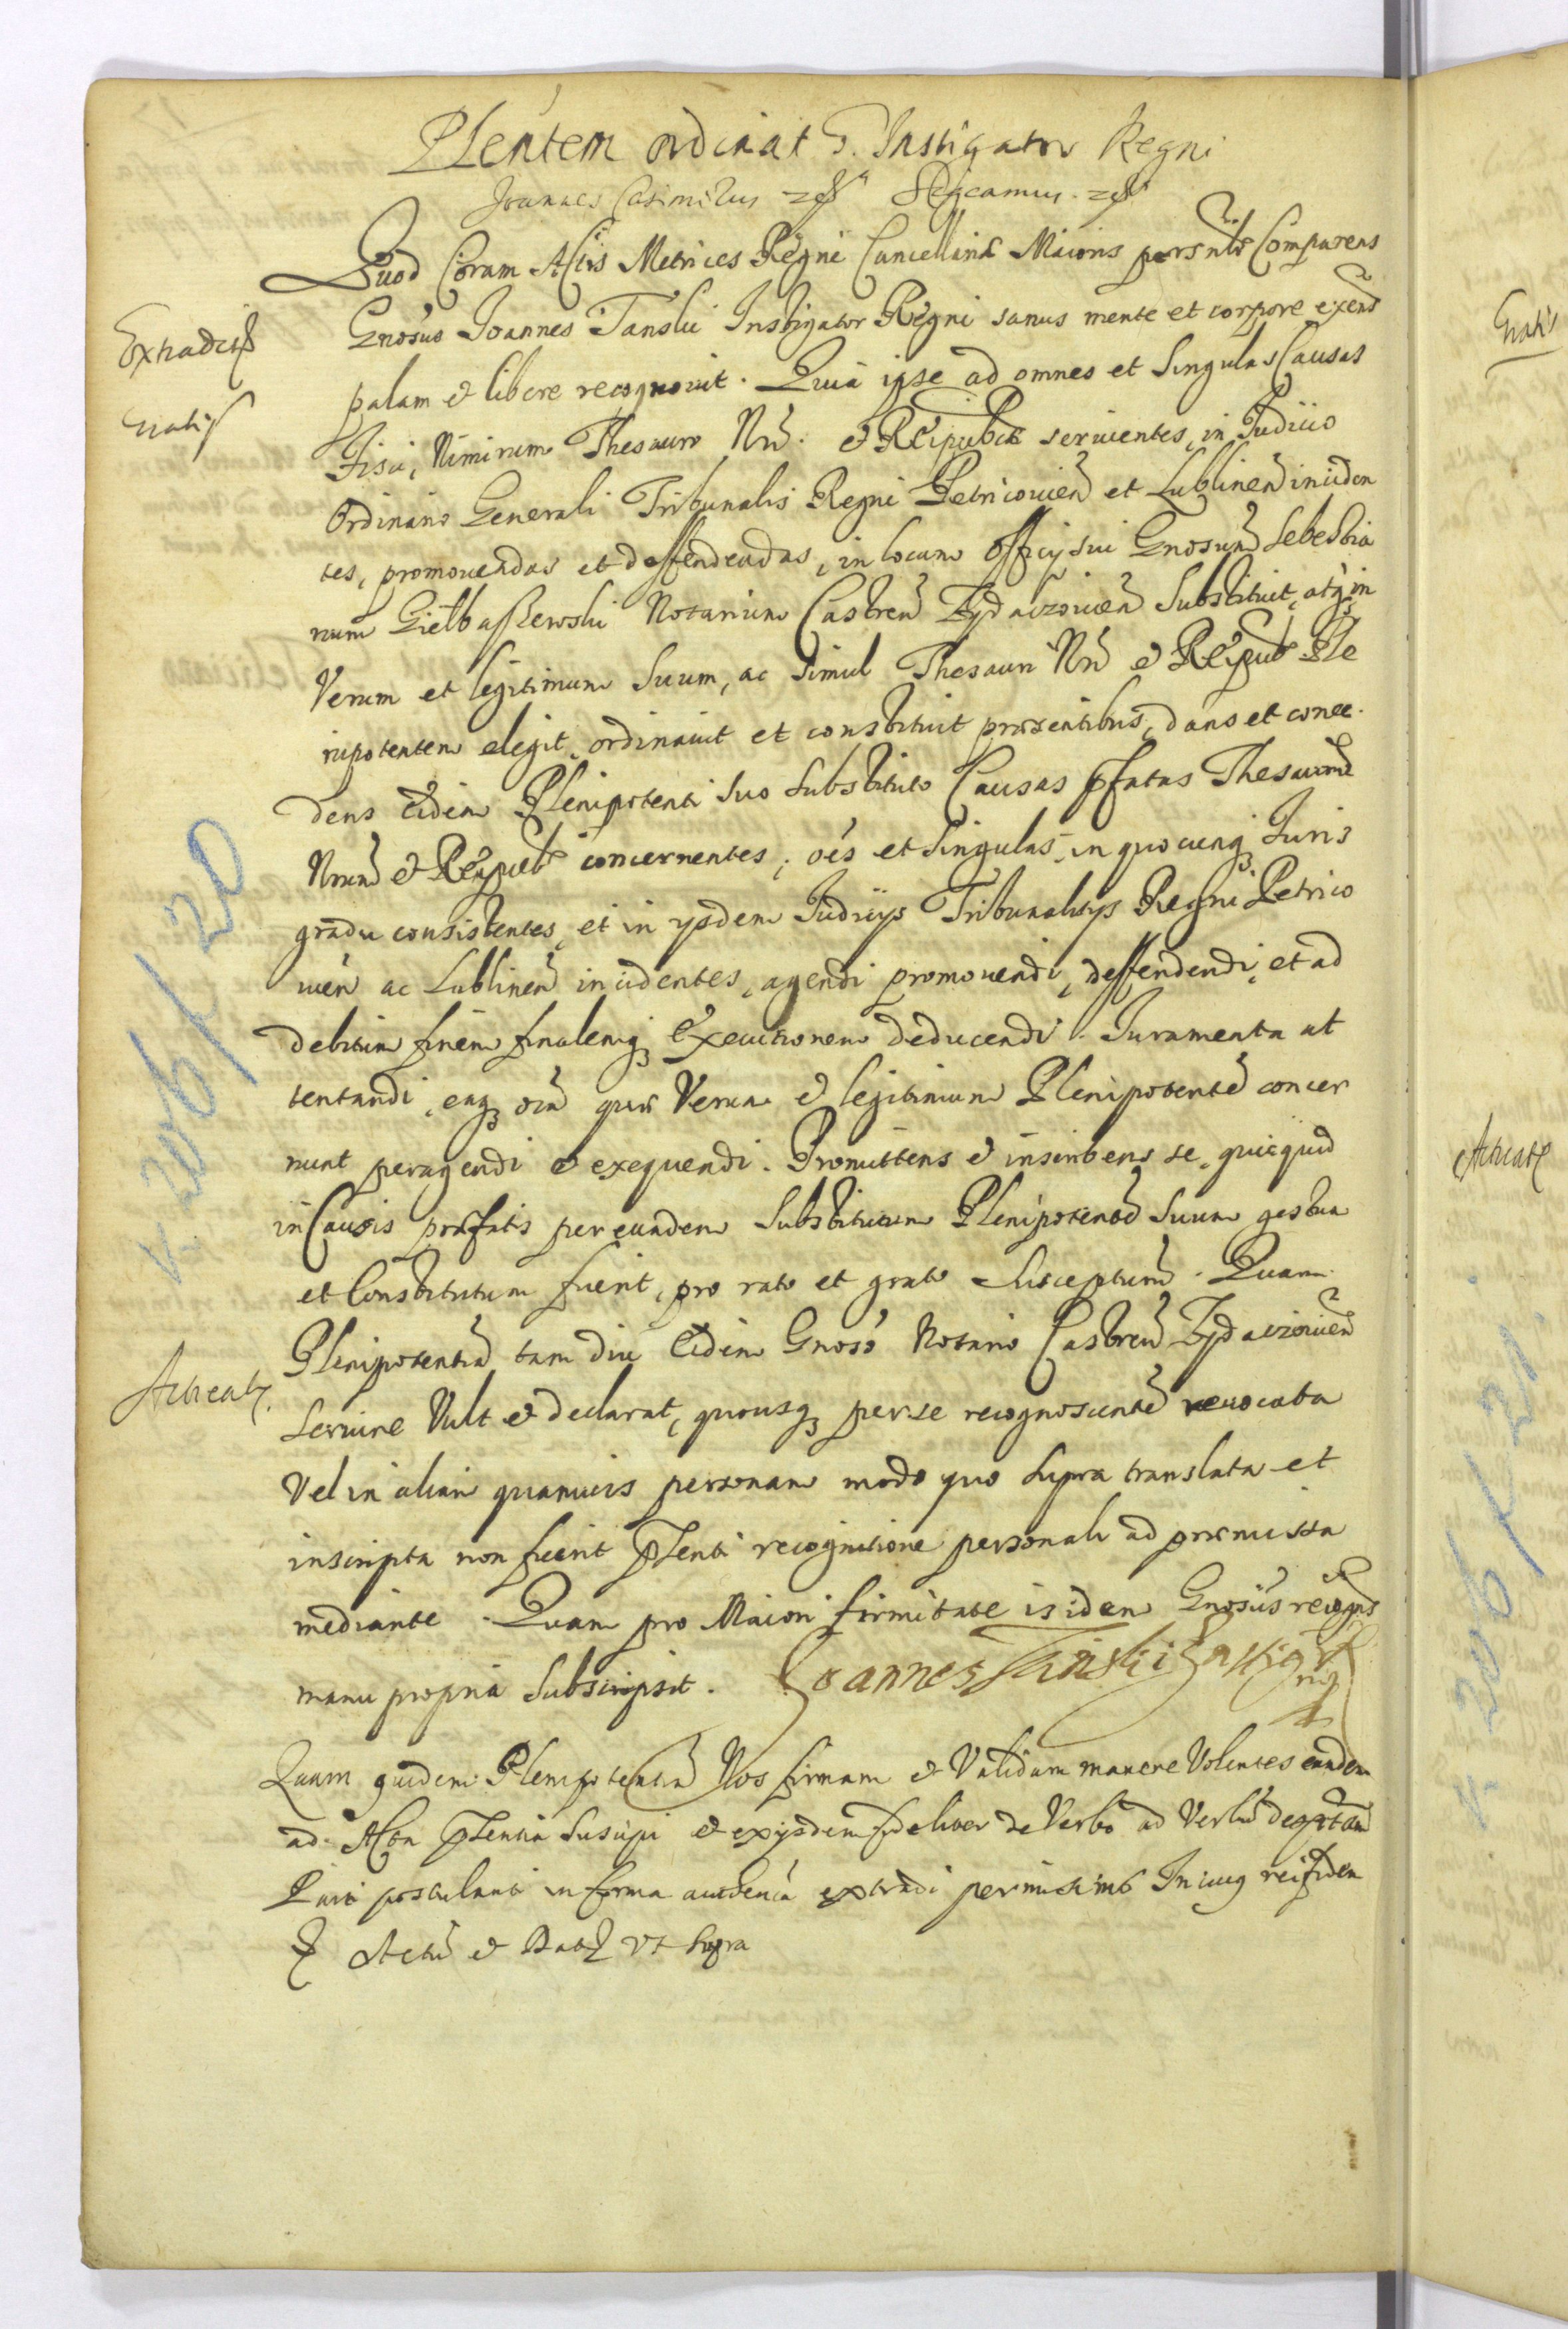 Plentem ordinat G. Instigator Regni
Joannes Casimirus
Quod Coram Actis Metrices Regni Cancellariæ Maioris persnlr Comparens
Gnosus Joannes Tanski Instigator Regni sanus mente et corpore exens
Extradit
palam et libere recognouit. Quia ipse ad omnes et Singulas Causas
Gratis
Fisci, Nimirum Thesauro Nro. et Reipublicæ seruientes, in Judicio
Ordinario Generali Tribunalis Regni Petricouien et Lublinen inciden
tes, promouendas et deffendendas, in locum Officij sui Gnosum Sebestia
num Giełbaszewski Notarium Castren Zydaczouien Substituit, atq in
Verum et legitimum Suum, ac Simul Thesauri Nri et Reipub Ple
nipotentem elegit, ordinauit et constituit præsentibus, dans et conce
dens Eidem Plenipotenti Suo Substituto Causas pfatas Thesaurum
Nrum et Reipub concernentes, oes et Singulas, in quocunq Juris
gradu consistentes, et in ijsdem Judicijs Tribunalitijs Regni Petrico
uien ac Lublinen incidentes, agendi promouendi, deffendendi, et ad
debitum finem finalemq Executionem deducendi. Juramenta at
tentandi, eaq oia quæ Verum et legitimum Plenipotente concer
nunt peragendi et exequendi. Promittens et inscribens se, quicquid
in Causis præfatis per eundem Substitutum Plenipotente Suum gestum
et Constitutum fuerit, pro rato et grato Suscepturum. Quam
Plenipotentia tam diu Eidem Gnoso Notario Castren Zydaczouien
Acticat.
Seruire Vult et declarat, quousq per se recognoscente reuocata
Vel in aliam quamuis personam modo quo Supra translata et
inscripta non fuerit Plenti recognitione personali ad præmissa
mediante. Quam pro Maiori firmitate is idem Gnosus recogns
manu propria Subscripsit. Joannes Tański Instigr
mq
Quam quidem Plenipotentia Nos firmam et Validam manere Volentes eandem
ad Acta Plentia Suscipi et ex ijsdem fideliter de Verbo ad Verbu deptam
Parti postulanti in forma autentica extradi permisimus In cuiq rei fidem
Actu et Dat Vt Supra
K 206/20
Gratis
Acticat
K 206/21.